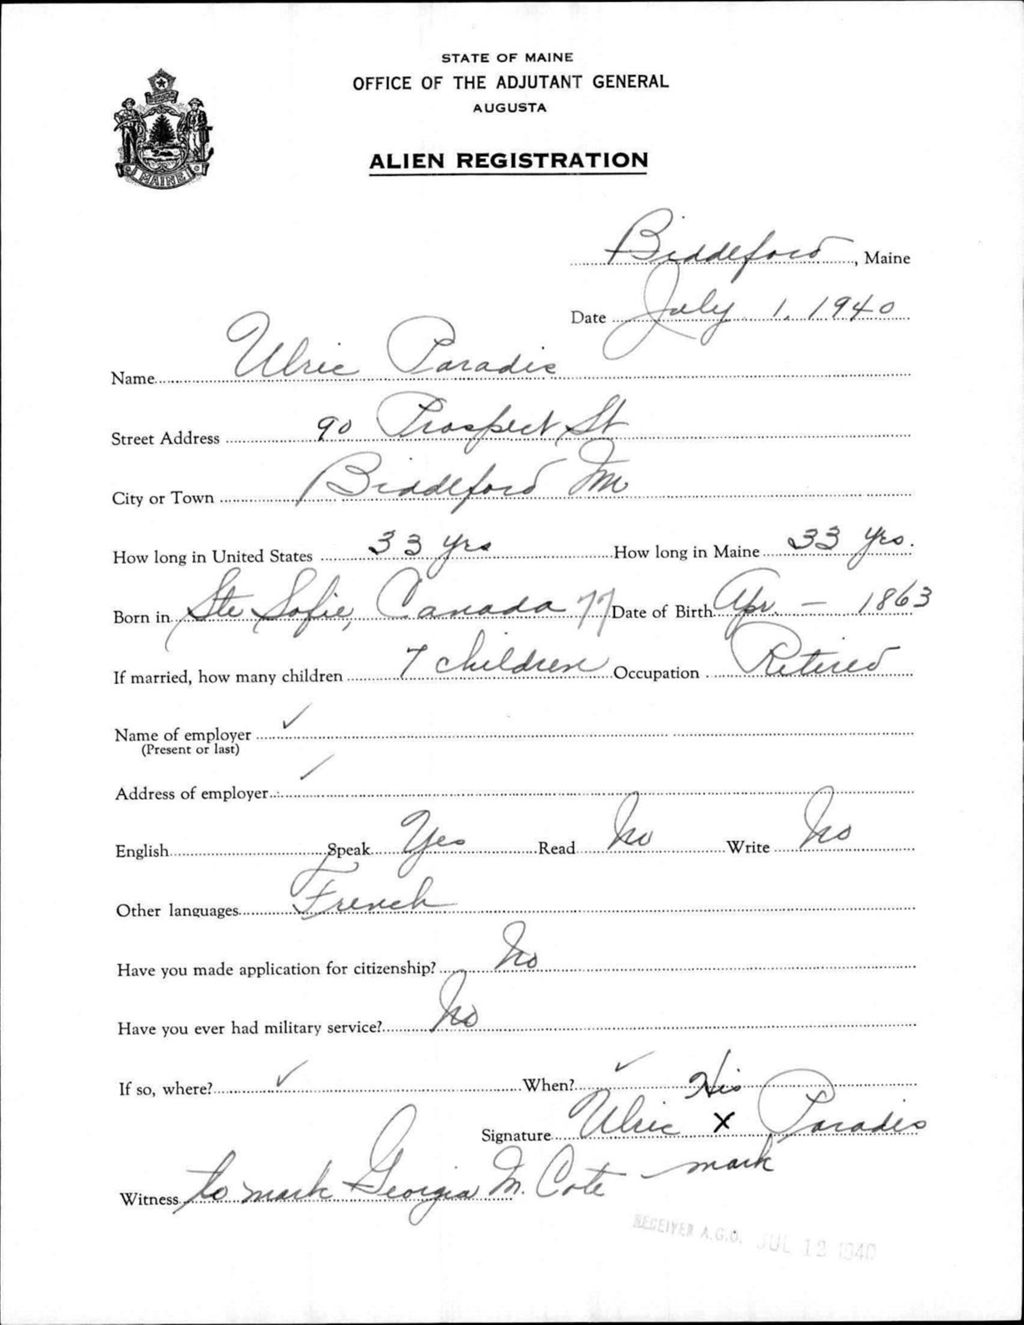 STATE OF MAINE
OFFICE OF THE ADJUTANT GENERAL
AUGUSTA
MAINE
ALIEN REGISTRATION
Biddeford, Maine
Date July 1, 1940
Name Ulric Paradis
Street Address 90 Prospect St
City or Town Biddeford Me
How long in United States 33 yrs How long in Maine 33 yrs.
Born in Ste Sofie, Canada 77 Date of Birth Apr. – 1863
If married, how many children 7 children Occupation Retired
Name of employer ✓
(Present or last)
Address of employer ✓
English Speak Yes Read No Write No
Other languages French
Have you made application for citizenship? No
Have you ever had military service? No
If so, where? ✓ When? ✓
His
Signature Ulric X Paradis
mark
Witness to mark Georgia M. Cote
RECEIVED A.G.O. JUL 12 1940